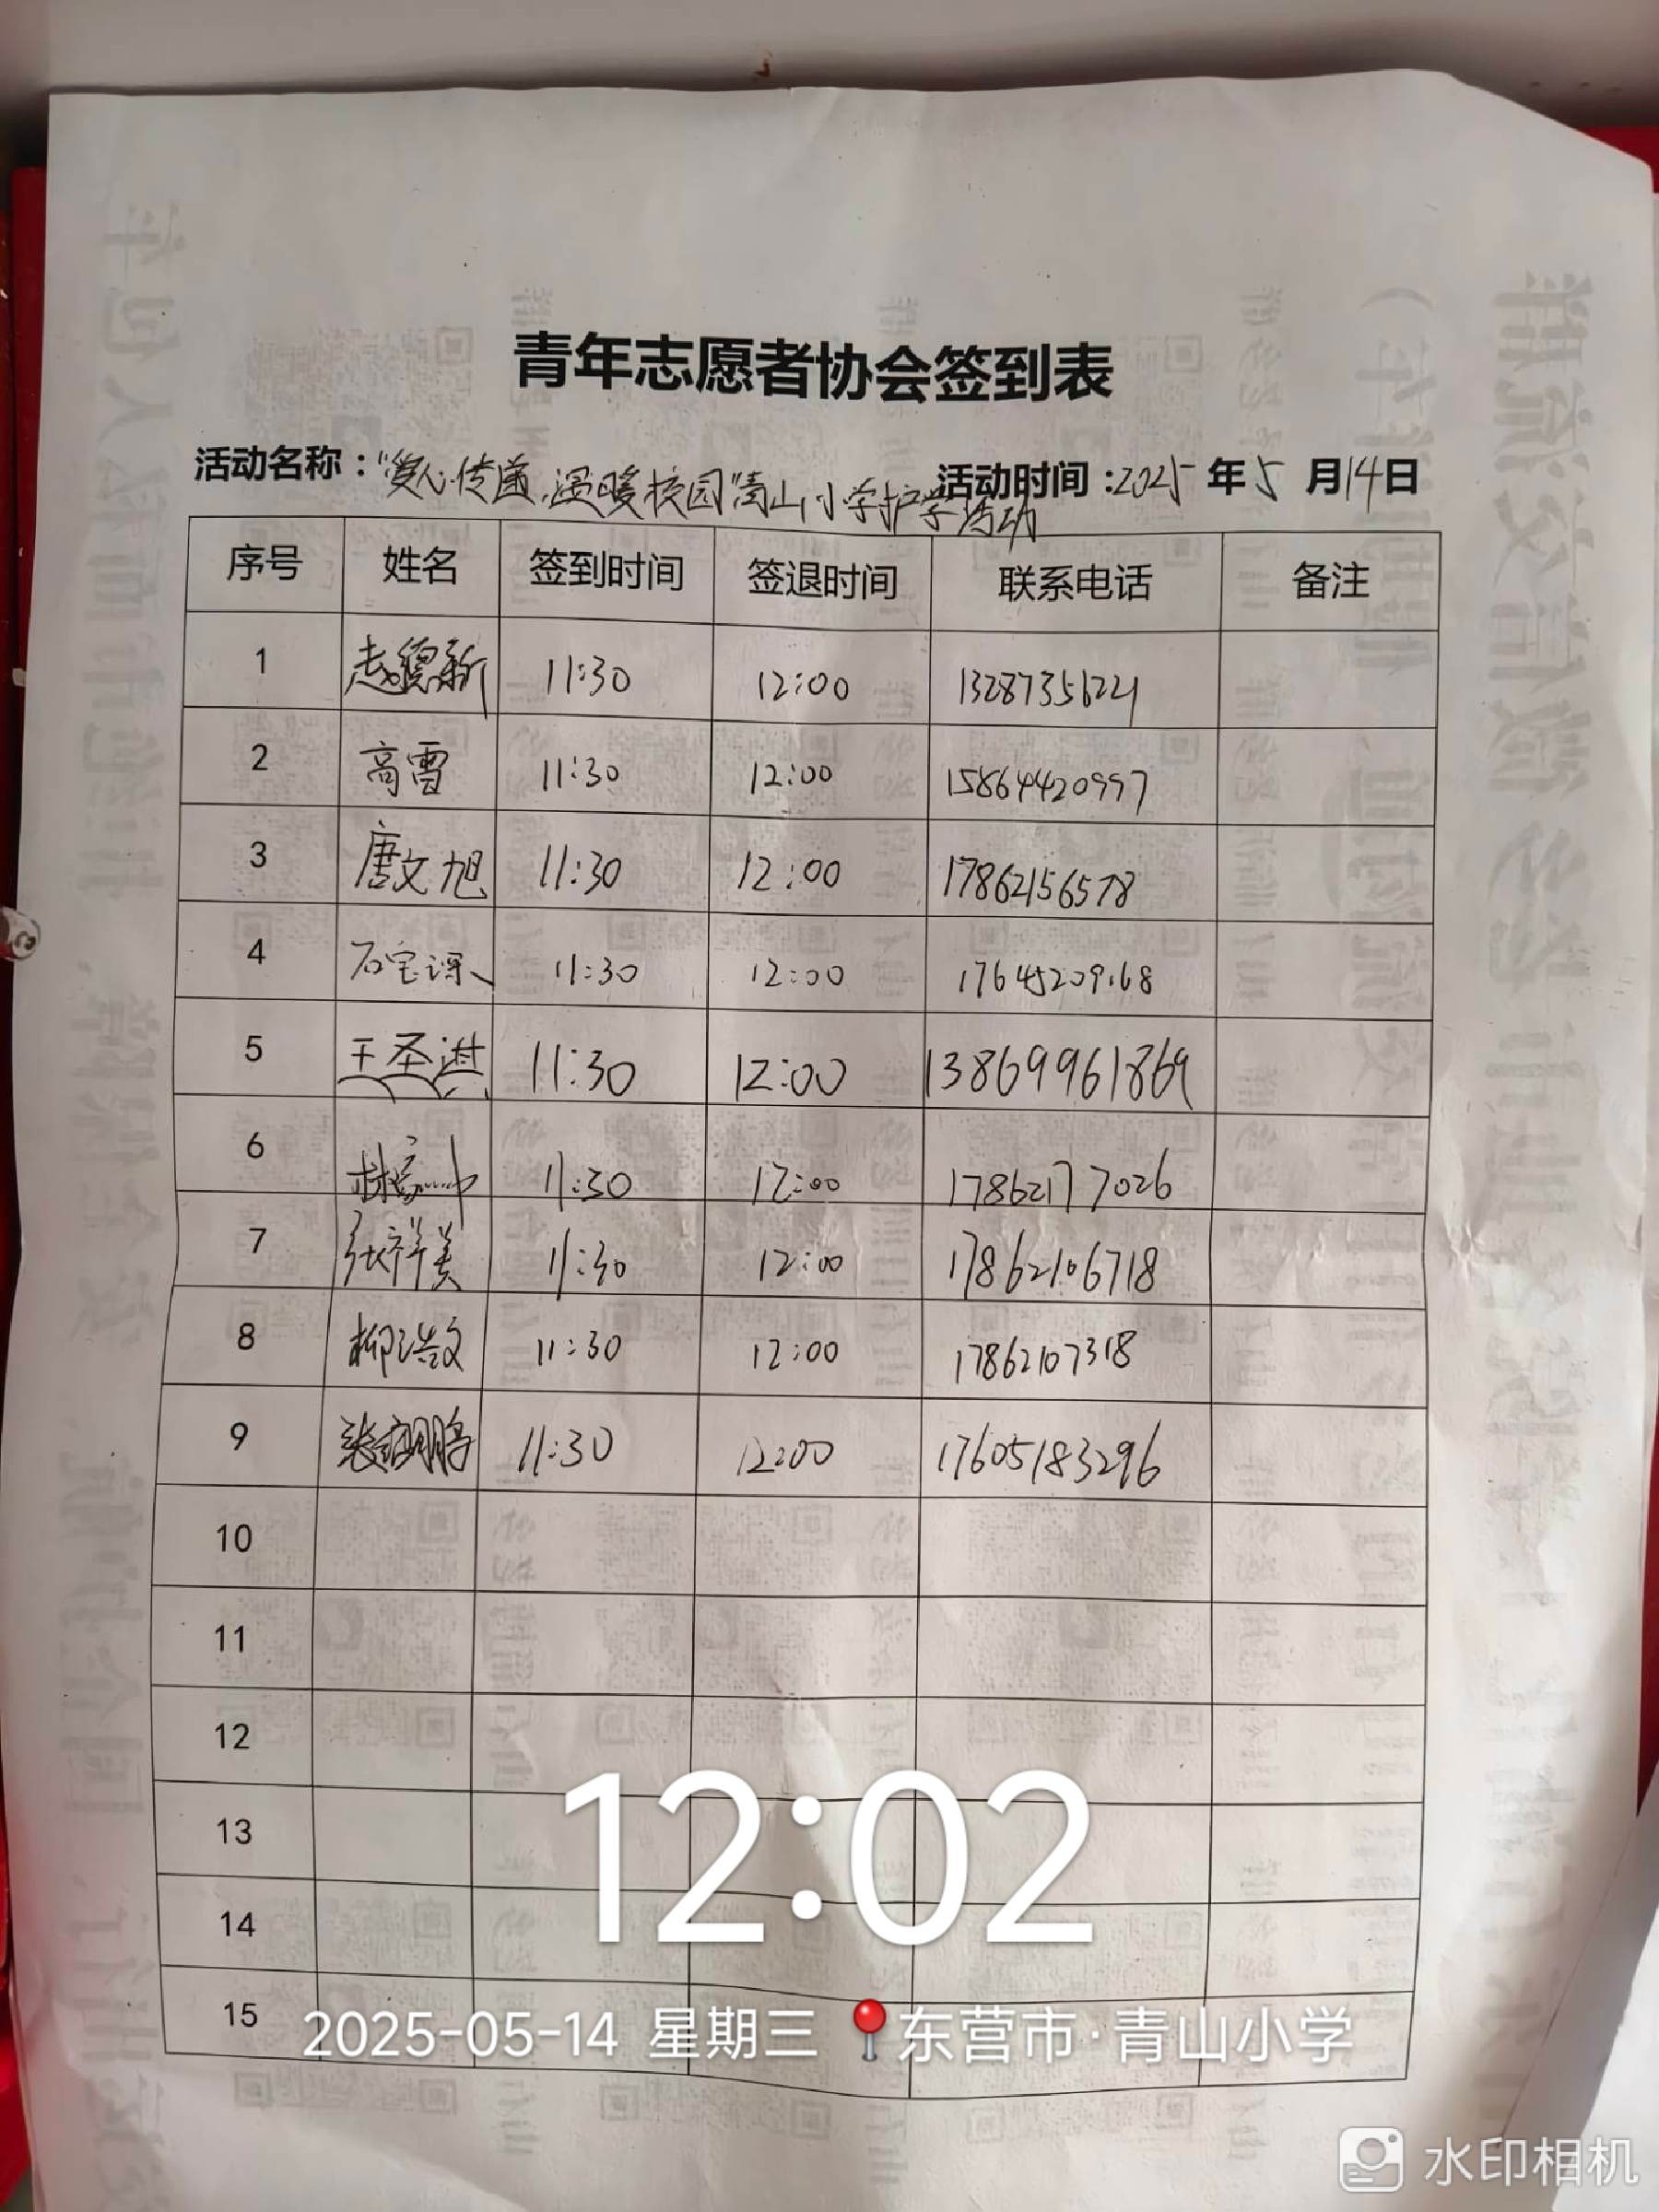 青年志愿者协会签到表
活动名称："爱心传递,温暖校园"青山小学护学活动 活动时间:2025年5月14日
序号 姓名 签到时间 签退时间 联系电话 备注
1 11:30 12:00
2 高雷 11:30 12:00 15864420997
3 唐文旭 11:30 12:00 17862156578
4 石宝深 11:30 12:00
5 王圣淇 11:30 12:00 13869961869
6 11:30 12:00 17862177026
7 张祥美 11:30 12:00 17862106718
8 柳浩文 11:30 12:00 17862107318
9 11:30 12:00 17605183296
10
11
12
13
14
15
12:02
2025-05-14 星期三 东营市·青山小学
水印相机